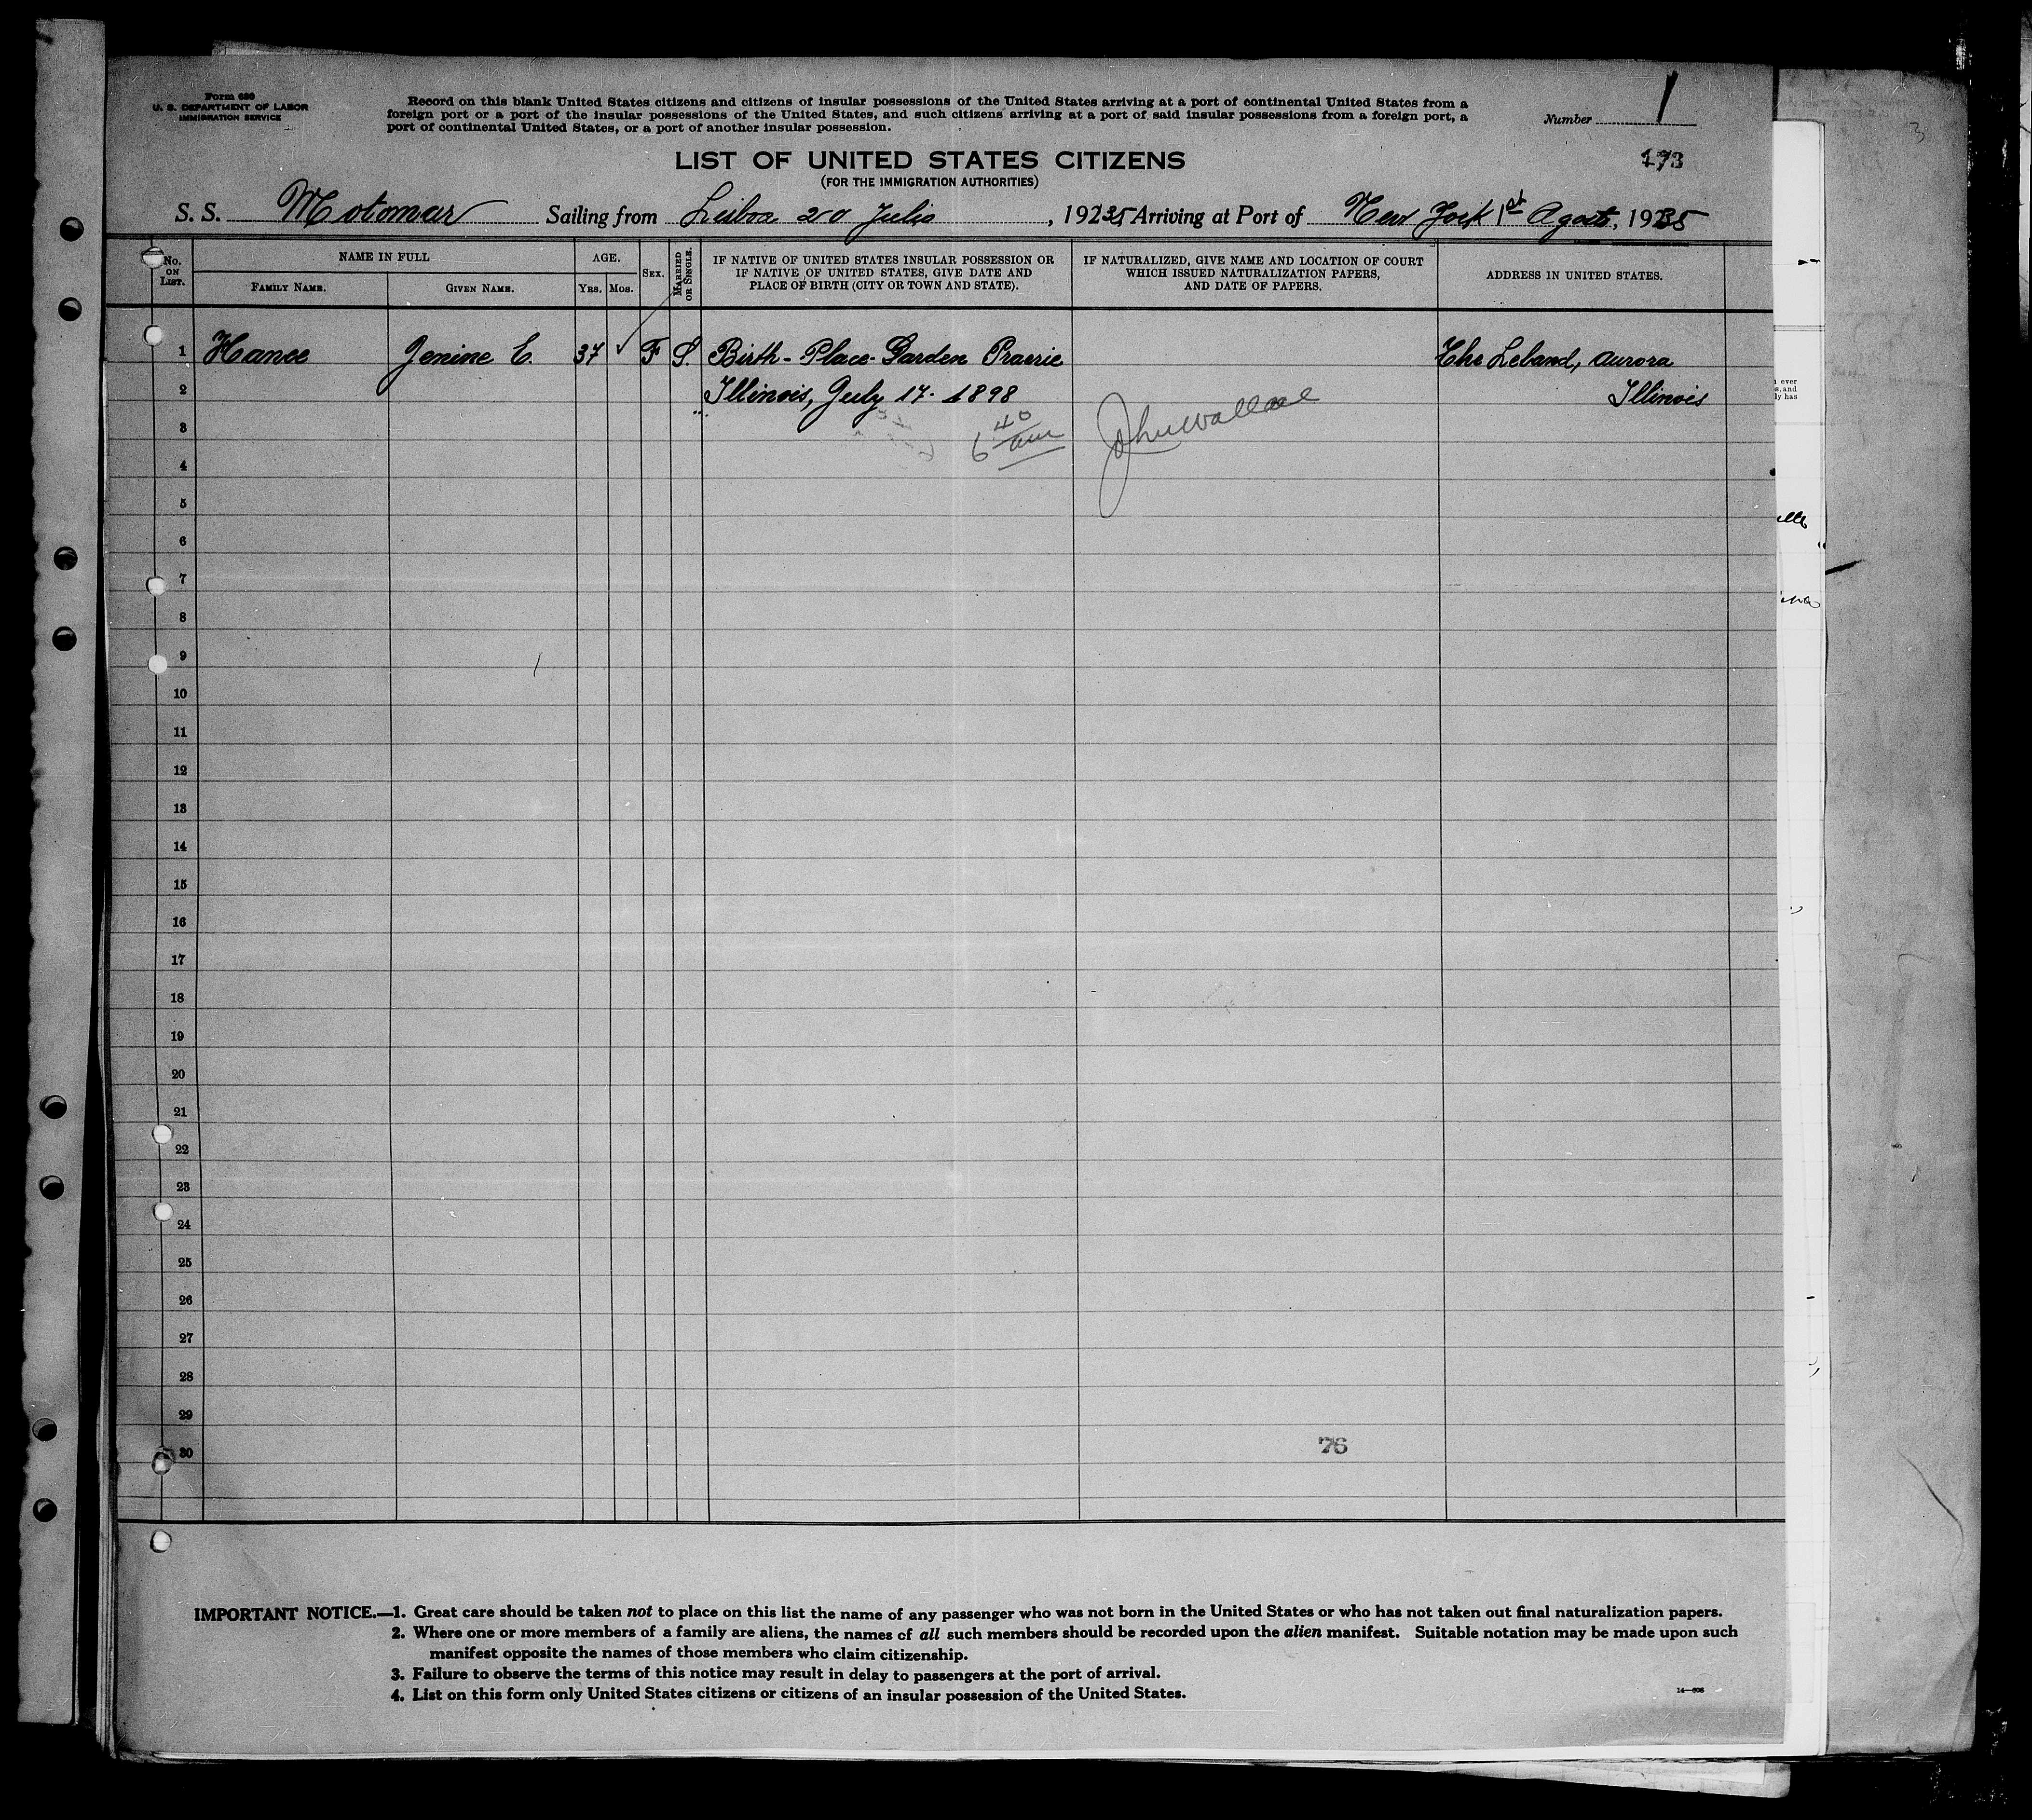 Form 630
U. S. DEPARTMENT OF LABOR
IMMIGRATION SERVICE
Record on this blank United States citizens and citizens of insular possessions of the United States arriving at a port of continental United States from a
foreign port or a port of the insular possessions of the United States, and such citizens arriving at a port of said insular possessions from a foreign port, a
port of continental United States, or a port of another insular possession.
Number 1
173
LIST OF UNITED STATES CITIZENS
(FOR THE IMMIGRATION AUTHORITIES)
S. S. Motomar Sailing from Lisboa 20 Julio, 1935 Arriving at Port of New York 1st Agosto, 1935
No. ON LIST.
NAME IN FULL
FAMILY NAME.
GIVEN NAME.
AGE.
YRS. MOS.
SEX.
MARRIED OR SINGLE.
IF NATIVE OF UNITED STATES INSULAR POSSESSION OR
IF NATIVE OF UNITED STATES, GIVE DATE AND
PLACE OF BIRTH (CITY OR TOWN AND STATE).
IF NATURALIZED, GIVE NAME AND LOCATION OF COURT
WHICH ISSUED NATURALIZATION PAPERS,
AND DATE OF PAPERS.
ADDRESS IN UNITED STATES.
1 Hance Jenine E. 37 F S. Birth-Place-Garden Praerie The Leband, Aurora
2 Illinois, July 17. 1898 Illinois
3 6 40 am John Wallace
4
5
6
7
8
9
10
11
12
13
14
15
16
17
18
19
20
21
22
23
24
25
26
27
28
29
30
76
IMPORTANT NOTICE.—1. Great care should be taken not to place on this list the name of any passenger who was not born in the United States or who has not taken out final naturalization papers.
2. Where one or more members of a family are aliens, the names of all such members should be recorded upon the alien manifest. Suitable notation may be made upon such
manifest opposite the names of those members who claim citizenship.
3. Failure to observe the terms of this notice may result in delay to passengers at the port of arrival.
4. List on this form only United States citizens or citizens of an insular possession of the United States.